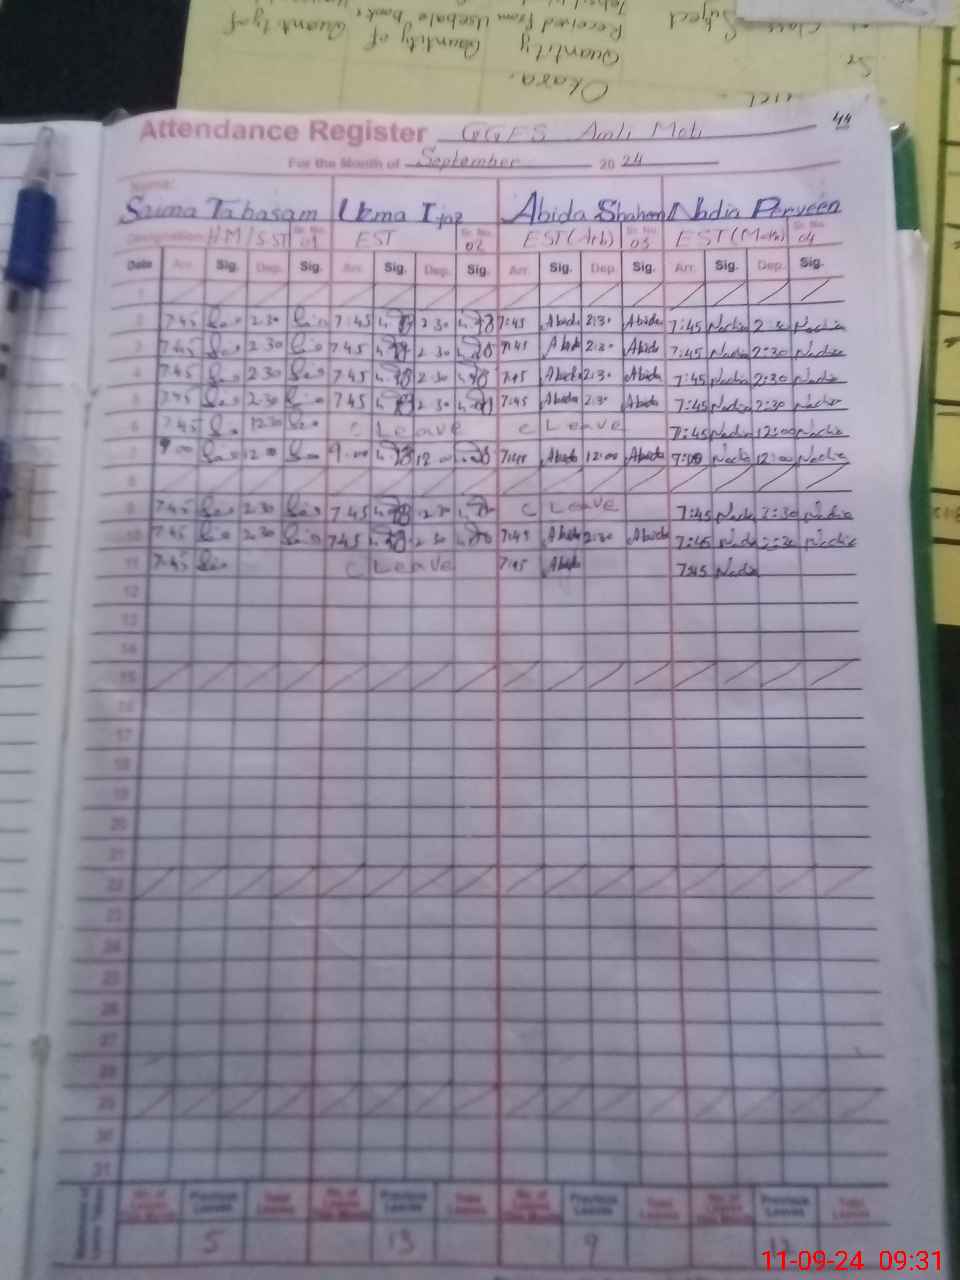 Okara.
Sr
Subject
Quantity Received From
Quantity of Useable books
Quantity of
44
Attendance Register GGES Amli Moti
For the Month of September 2024
Name:
Saima Tabasam Uzma Ijaz Abida Shaheen Nadia Perveen
Designation: HM/SST Sr. No. 01 EST Sr. No. 02 EST(Arb) Sr. No. 03 EST(Math) Sr. No. 04
Date Arr. Sig. Dep. Sig. Arr. Sig. Dep. Sig. Arr. Sig. Dep. Sig. Arr. Sig. Dep. Sig.
1
2 7:45 2:30 7:45 2:30 7:45 Abida 2:30 Abida 7:45 Nadia 2:30 Nadia
3 7:45 2:30 7:45 2:30 7:45 Abida 2:30 Abida 7:45 Nadia 2:30 Nadia
4 7:45 2:30 7:45 2:30 7:45 Abida 2:30 Abida 7:45 Nadia 2:30 Nadia
5 7:45 2:30 7:45 2:30 7:45 Abida 2:30 Abida 7:45 Nadia 2:30 Nadia
6 7:45 12:30 C Leave C Leave 7:45 Nadia 12:00 Nadia
7 9:00 12:00 9:00 12:00 Abida 12:00 Abida Nadia 12:00 Nadia
8
9 7:45 2:30 7:45 2:30 C Leave 7:45 Nadia 2:30 Nadia
10 7:45 2:30 7:45 2:30 7:45 Abida 2:30 Abida 7:45 Nadia 2:30 Nadia
11 7:45 C Leave 7:45 Abida 7:45 Nadia
12
13
14
15
16
17
18
19
20
21
22
23
24
25
26
27
28
29
30
31
No. of Leaves This Month Previous Leaves Total Leaves No. of Leaves This Month Previous Leaves Total Leaves No. of Leaves This Month Previous Leaves Total Leaves No. of Leaves This Month Previous Leaves Total Leaves
5 13 9
11-09-24 09:31